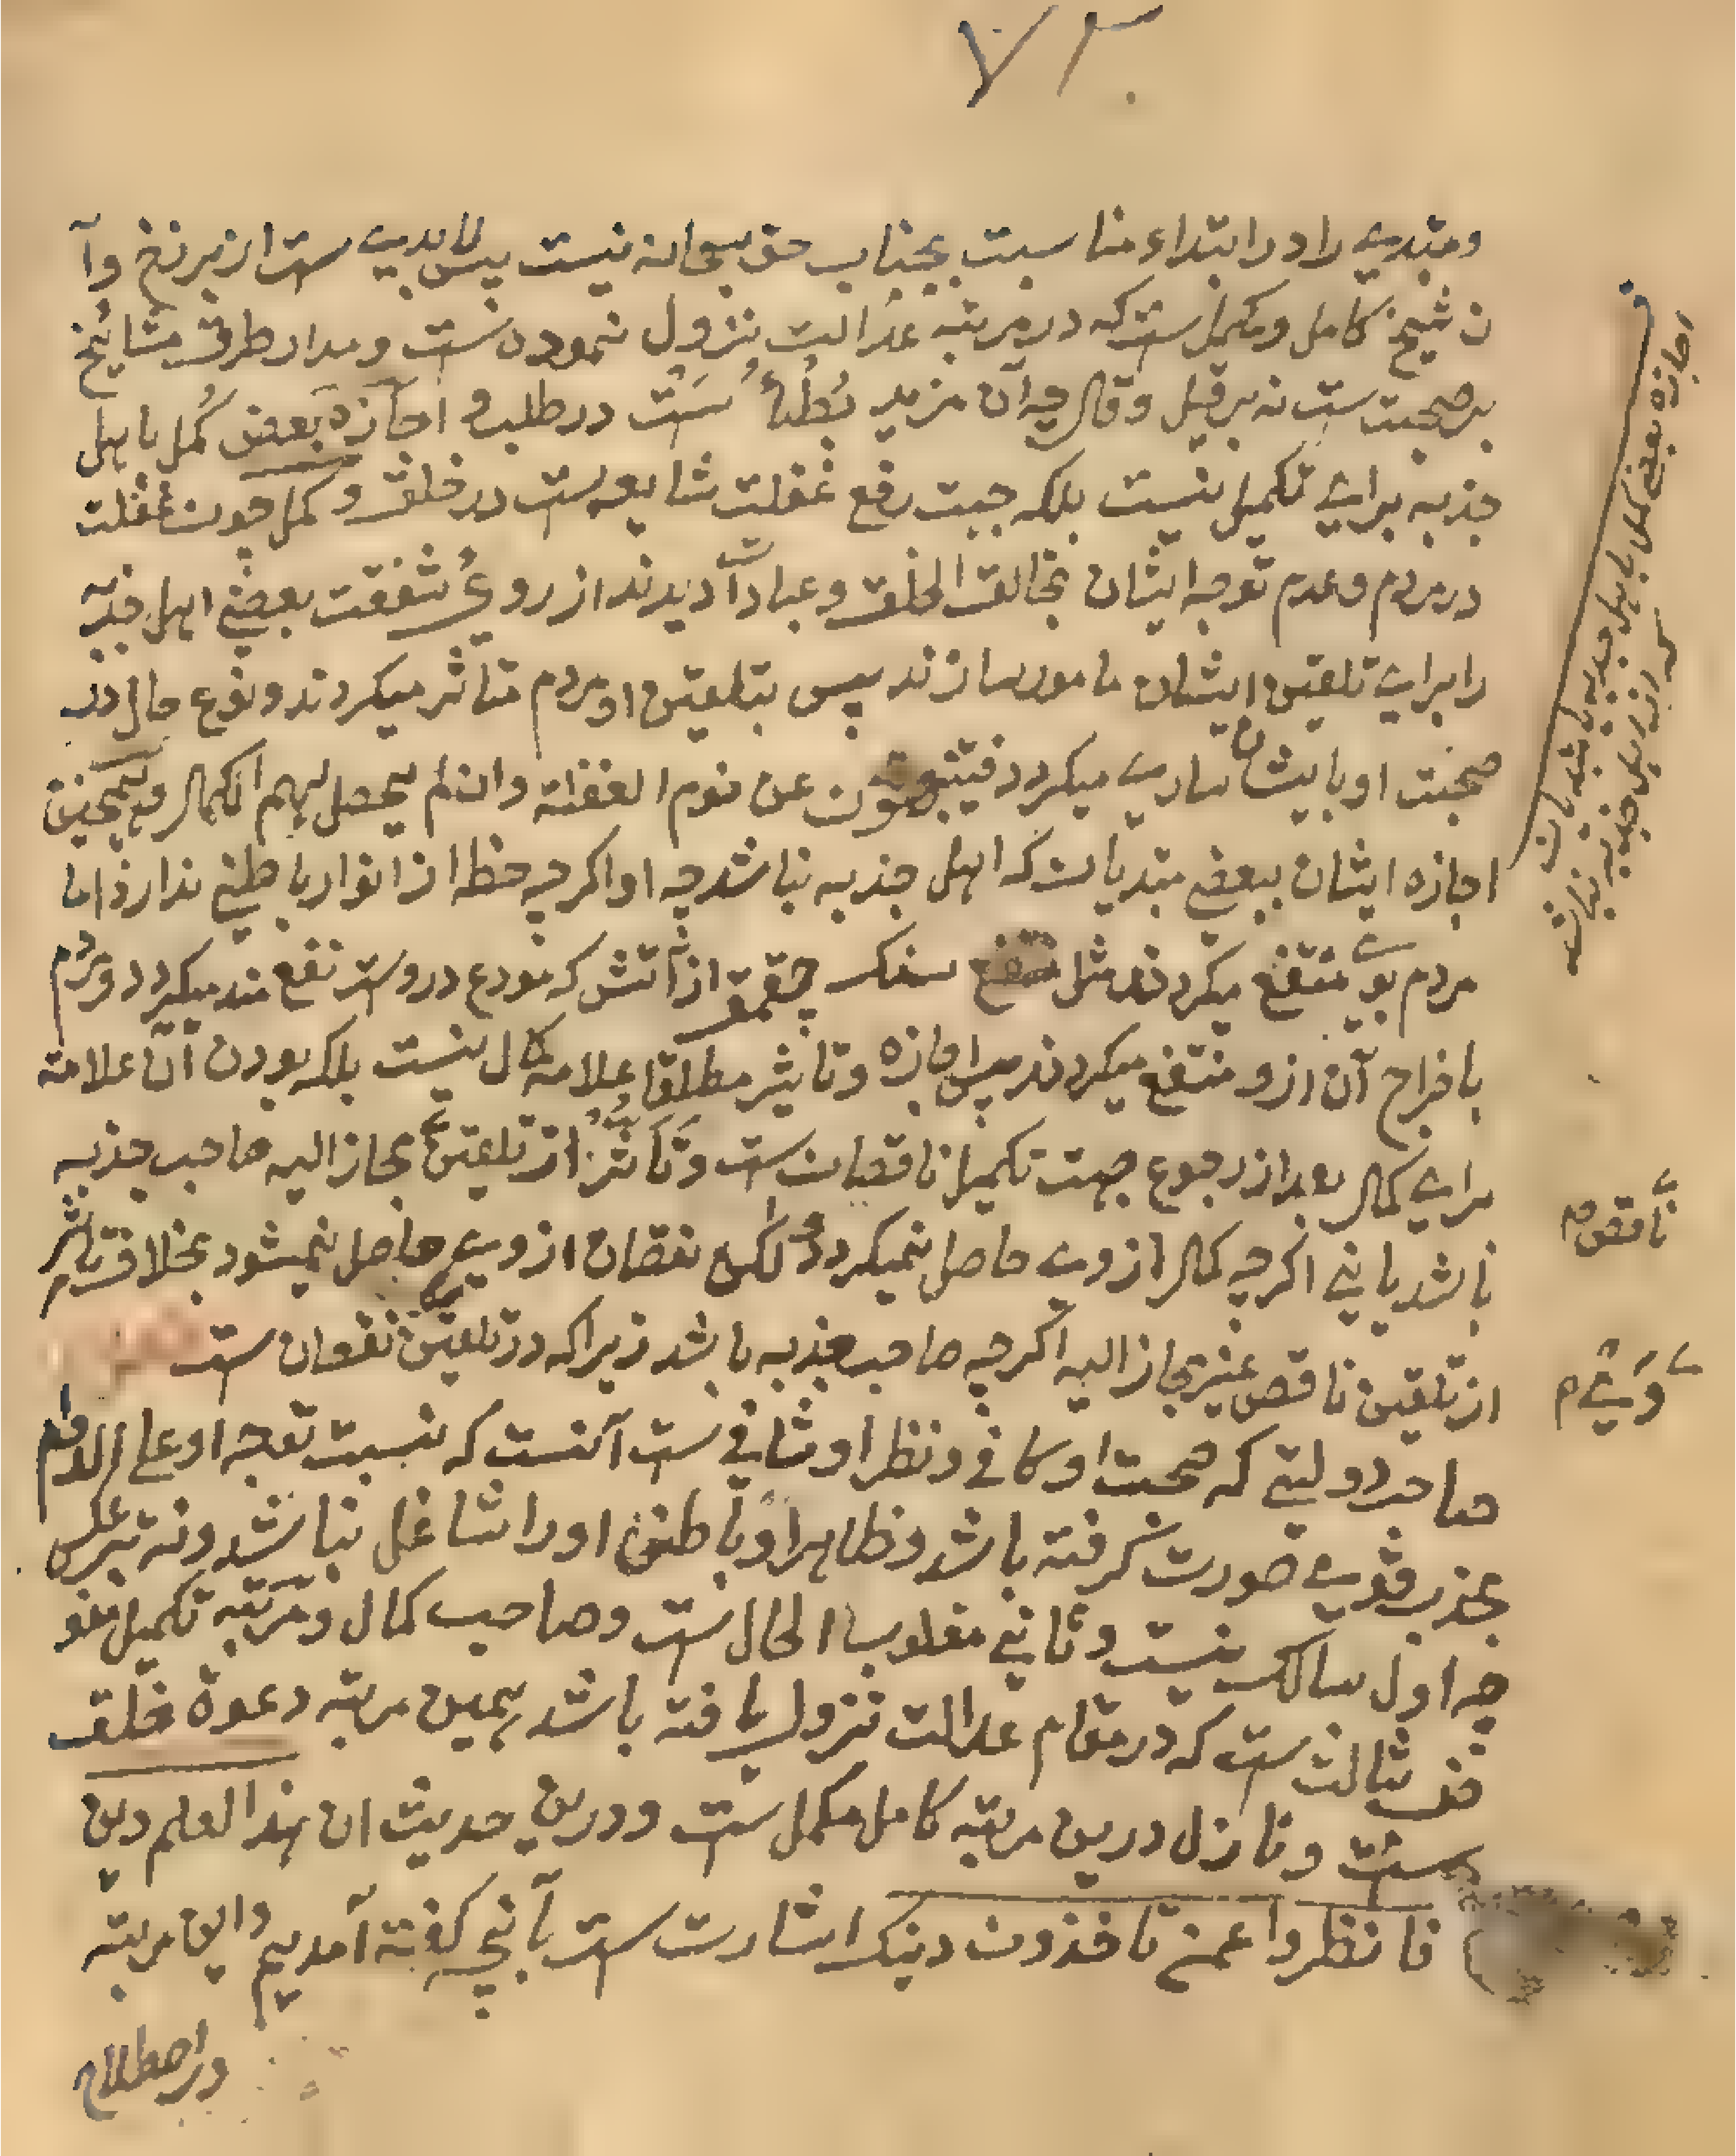 ٧٣
ومبتدی را در ابتداء مناسبت بجناب حق سبحانه نیست پس لابدیست از برزخ وآ
ن شیخ کامل ومکمل ست که در مرتبه عدالت نزول نموده است ومدار طرق مشایخ
بر صحبت ست نه بر قیل وقال چه آن مزید بُطْأُ سَت در طلب و اجازة بعض کُمل باهل
جذبه برای تکمیل نیست بلکه جهت رفع غفلت شایعه ست در خلق وکمل چون غفلت
در مردم وعدم توجه ایشان بخالق الخلق وعبادات دیدند از روی شفقت بعضی اهل جذبه
را برای تلقین ایشان مامور سازند پس بتلقین او مردم متاثر میکردند ونوع حال در
صحبت او بایشان ساری میکردد فینتبهون عن نوم الغفلة وان لم یحصل لهم الکمال وهمچنین
اجازه ایشان ببعضی مبتدیان که اهل جذبه نباشد چه او اکرچه حظ از انوار باطنی ندارد اما
مردم بوی منتفع میکردند مثل سنک چقمق از آتش که مودع دروست نفع مند نمیکردد ومردم
باخراج آن ازو منتفع میکردند پس اجازه وتاثیر مطلقا علامه کمال نیست بلکه بودن آن علامة
برای کمال بعد از رجوع جهت تکمیل ناقصان ست وتَاَثُّر از تلقین مجاز الیه صاحب جذبه
باشد یا نی اکرچه کمال از وی حاصل نمیکردد لکن نقصان از وی حاصل نمیشود بخلاف تاثر
از تلقین ناقص غیر مجاز الیه اکرچه صاحب جذبه باشد زیراکه در تلقین نقصان ست
صاحب دولتی که صحبت او کافی ونظر او شافی ست آنست که نسبت توجه او علی الدوام
بجذب قوی صورت کرفته باشد وظاهر او باطن او را شاغل نباشد ونه بر عکس
چه اول سالک نیست وثانی مغلوب الحال ست وصاحب کمال ومرتبه تکمیل منو
ف ثالث ست که در مقام عدالت نزول یافته باشد همین مرتبه دعوة خلق
ست ونازل درین مرتبه کامل مکمل ست ودرین حدیث ان هذا العلم دین
فانظروا عمن تاخذون دینک اشارت ست بآنچه کفته آمدیم واین مرتبه
در اصطلاح
اجازه بعضی کمل باهل جذبه
ناقص م